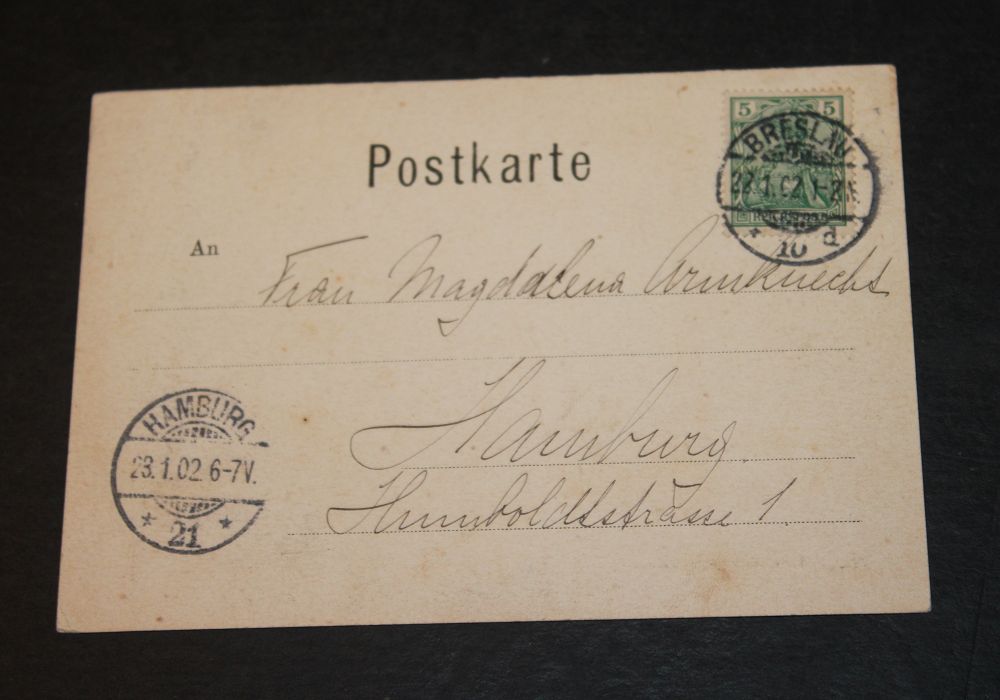 5 5
BRESLAU
1.02. 1-2N.
10 d
Postkarte
An
Frau Magdalena Armknecht
Hamburg
Humboldtstrasse 1.
HAMBURG
23.1.02. 6-7V.
* 21 *